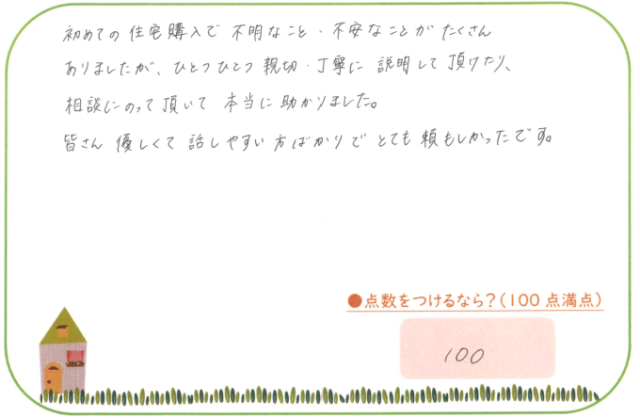 初めての住宅購入で不明なこと・不安なことがたくさん
ありましたが、ひとつひとつ親切・丁寧に説明して頂けたり、
相談にのって頂いて本当に助かりました。
皆さん優しくて話しやすい方ばかりでとても頼もしかったです。
●点数をつけるなら?(100点満点)
100